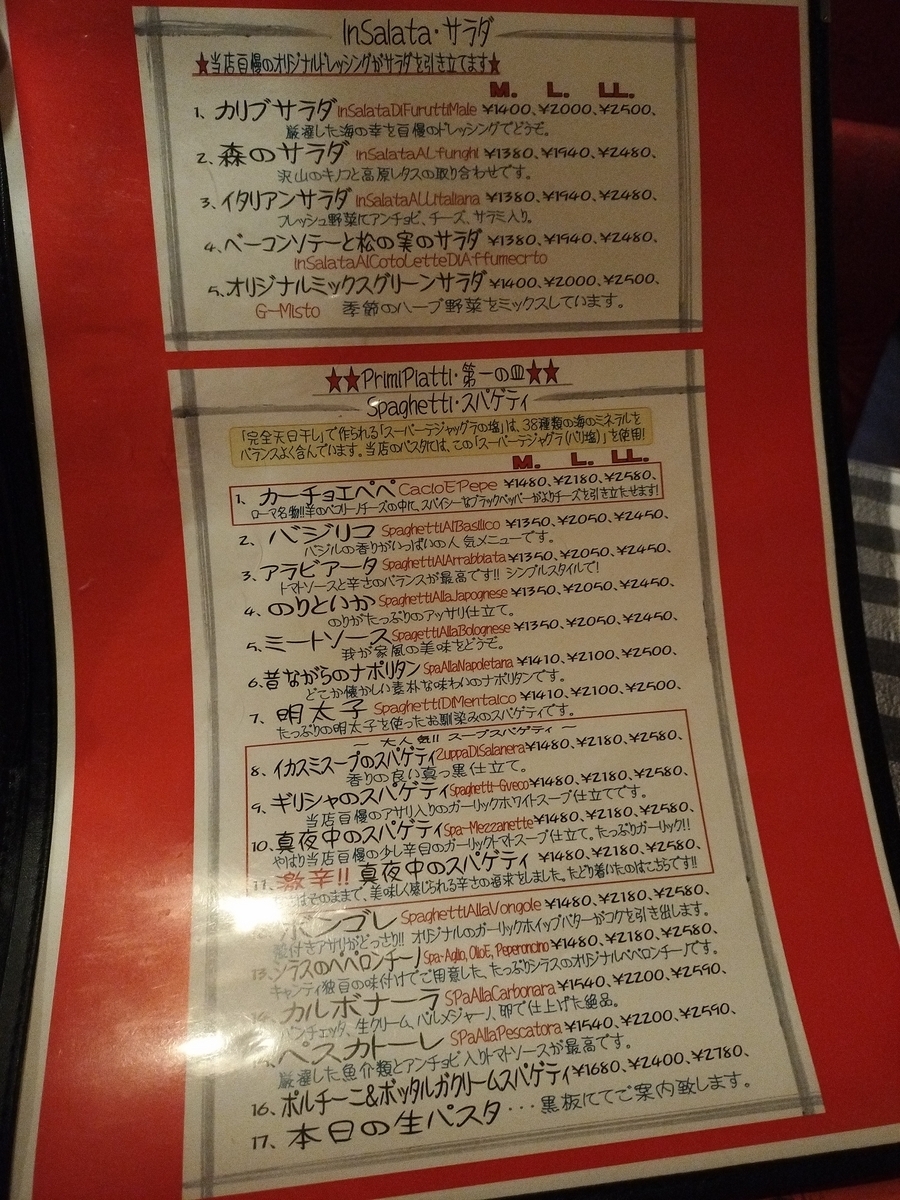 InSalata・サラダ
★当店自慢のオリジナルドレッシングがサラダを引き立てます★
M. L. LL.
1、カリブサラダ InSalataDiFuruttiMale ¥1400、¥2000、¥2500、
厳選した海の幸を自慢のドレッシングでどうぞ。
2、森のサラダ InSalataALfunghi ¥1380、¥1940、¥2480、
沢山のキノコと高原レタスの取り合わせです。
3、イタリアンサラダ InSalataALLItaliana ¥1380、¥1940、¥2480、
フレッシュ野菜にアンチョビ、チーズ、サラミ入り。
4、ベーコンソテーと松の実のサラダ ¥1380、¥1940、¥2480、
InSalataAlCotoLetteDiAffumecrto
5、オリジナルミックスグリーンサラダ ¥1400、¥2000、¥2500、
G-Misto 季節のハーブ野菜をミックスしています。
★★PrimiPiatti・第一の皿★★
Spaghetti・スパゲティ
「完全天日干し」で作られる「スーパーテジャッグラの塩」は、38種類の海のミネラルを
バランスよく含んでいます。当店のパスタには、この「スーパーテジャグラ(バリ塩)」を使用!
M. L. LL.
1、カーチョエペペ CacioEPepe ¥1480、¥2180、¥2580、
ローマ名物!!羊のペコリーノチーズの中に、スパイシーなブラックペッパーがよりチーズを引き立たせます!
2、バジリコ SpaghettiAlBasilico ¥1350、¥2050、¥2450、
バジルの香りがいっぱいの人気メニューです。
3、アラビアータ SpaghettiAlArrabbiata ¥1350、¥2050、¥2450、
トマトソースと辛さのバランスが最高です!! シンプルスタイルで!
4、のりといか SpaghettiAllaJapognese ¥1350、¥2050、¥2450、
のりがたっぷりのアッサリ仕立て。
5、ミートソース SpagettiAllaBolognese ¥1350、¥2050、¥2450、
我が家風の美味をどうぞ。
6、昔ながらのナポリタン SpaAllaNapoletana ¥1410、¥2100、¥2500、
どこか懐かしい素朴な味わいのナポリタンです。
7、明太子 SpaghettiDiMentaico ¥1410、¥2100、¥2500、
たっぷりの明太子を使ったお馴染みのスパゲティです。
― 大人気!! スープスパゲティ ―
8、イカスミスープのスパゲティ ZuppaDiSalanera ¥1480、¥2180、¥2580、
香りの良い真っ黒仕立て。
9、ギリシャのスパゲティ Spaghetti-Gveco ¥1480、¥2180、¥2580、
当店自慢のアサリ入りのガーリックホワイトスープ仕立てです。
10、真夜中のスパゲティ Spa-Mezzanette ¥1480、¥2180、¥2580、
やはり当店自慢の少し辛目のガーリックトマトスープ仕立て。たっぷりガーリック!!
11、激辛!! 真夜中のスパゲティ ¥1480、¥2180、¥2580、
はそのままで、美味しく感じられる辛さの追求をしました。たどり着いたのはこちらです!!
ボンゴレ SpaghettiAllaVongole ¥1480、¥2180、¥2580、
殻付きアサリがどっさり!! オリジナルのガーリックホイップバターがコクを引き出します。
13、シラスのペペロンチーノ Spa-Aglio, OlioE, Peperoncino ¥1480、¥2180、¥2580、
キャンティ独自の味付けでご用意した、たっぷりシラスのオリジナルペペロンチーノです。
カルボナーラ SPaAllaCarbonara ¥1540、¥2200、¥2590、
パンチェッタ、生クリーム、パルメジャーノ、卵で仕上げた絶品。
ペスカトーレ SPaAllaPescatora ¥1540、¥2200、¥2590、
厳選した魚介類とアンチョビ入りトマトソースが最高です。
16、ポルチーニ&ボッタルガクリームスパゲティ ¥1680、¥2400、¥2780、
17、本日の生パスタ・・・黒板にてご案内致します。